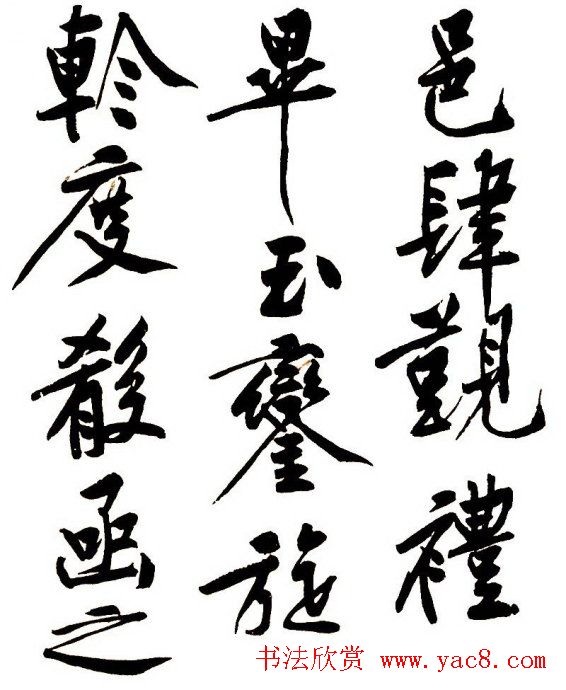 邑肆覲禮
畢玉鑾旋
軫度殽函之
书法欣赏 www.yac8.com